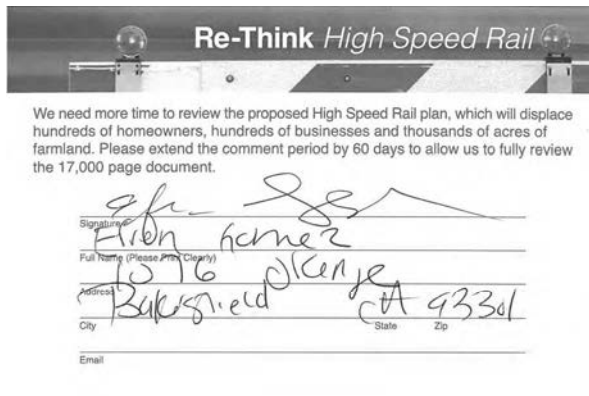 Re-Think High Speed Rail
We need more time to review the proposed High Speed Rail plan, which will displace
hundreds of homeowners, hundreds of businesses and thousands of acres of
farmland. Please extend the comment period by 60 days to allow us to fully review
the 17,000 page document.
Signature
Gomez
Full Name (Please Print Clearly)
Address
Bakersfield CA 93301
City State Zip
Email